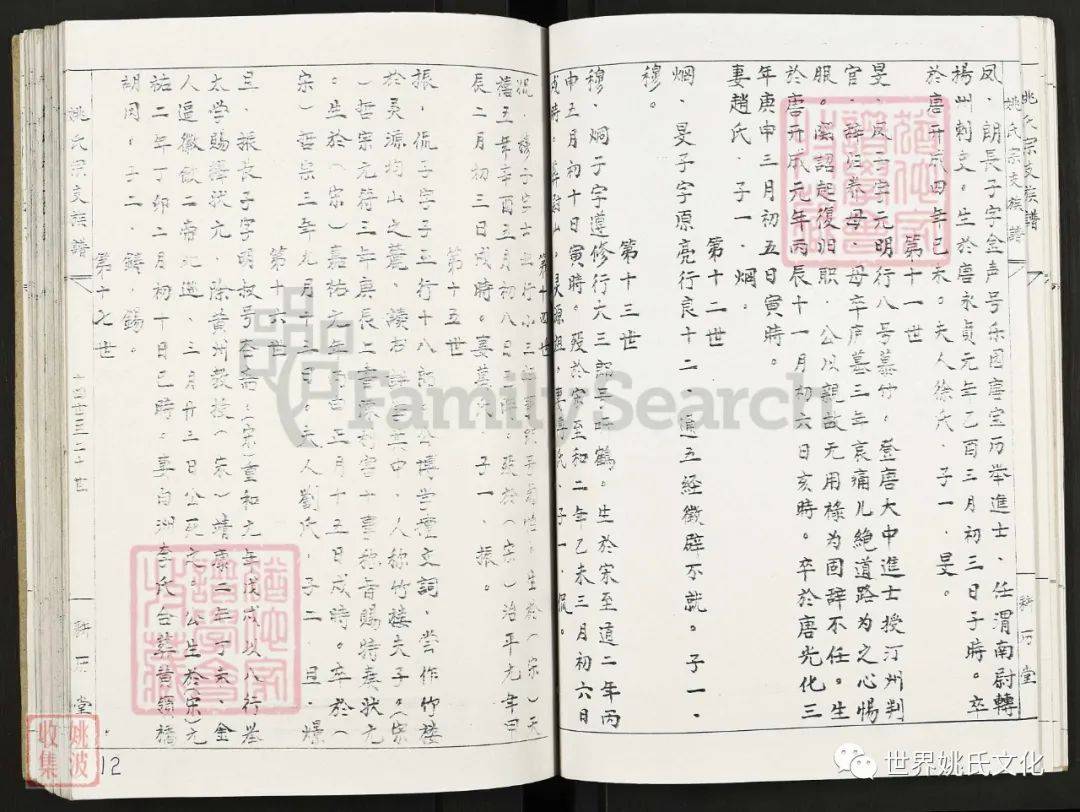 姚氏宗支族譜
耕石堂
凤、朗長子字金声号乐囦唐宝历举進士、任渭南尉轉
揚州刺史。生於唐永貞元年乙酉三月初三日子時。卒
於唐开成四年己未。夫人徐氏、子一、旻。
第十一世
旻、凤子字元明行八号慕竹。登唐大中進士授汀州判
官、辞注养母、母卒庐墓三年哀痛几絶道路为之心惕
服。阕詔起復旧职、公以親故无用禄为固辞不任。生
於唐开成元年丙辰十一月初六日亥時。卒於唐光化三
年庚申三月初五日寅時。
妻趙氏、子一、烱。
第十二世
烱、旻子字原亮行良十二、通五經徵辟不就。子一、
穆。
第十三世
穆、烱子字遵修行六三詔号吟鶴。生於宋至道二年丙
申五月初十日寅時。殁於宋至和二年乙未三月初六日
戌時。
第十四世
舊五年辛酉三月初八日時。殁於（宋）治平元年甲
辰二月初三日戌時。妻葛氏、子一、振。
第十五世
振、侃子字子三行十八、公博学工文詞、尝作竹楼
於灵源均山之麓、讀书其中、人称竹楼夫子。（宋
）哲宗元符三年庚辰二書十事称旨賜特奏状元
。生於（宋）嘉祐元年丙申正月十五日戌時。卒於（
宋）哲宗三年九月三日。夫人劉氏、子二、旦、爆
第十六世
旦、振長子字明叔号（宋）重和元年戊戌以八行举
太学賜状元、除黄州教授、（宋）靖康二年丁未、金
人逼徽欽二帝北、三月廿三日公死之。公生於（宋）元
祐二年丁卯二月初十日巳時。妻白湖李氏合葬黄嶺橋
胡同。子二、鑄、錫。
第十七世
姚氏宗支族譜
耕石堂
12
姚波
收集
FamilySearch
世界姚氏文化